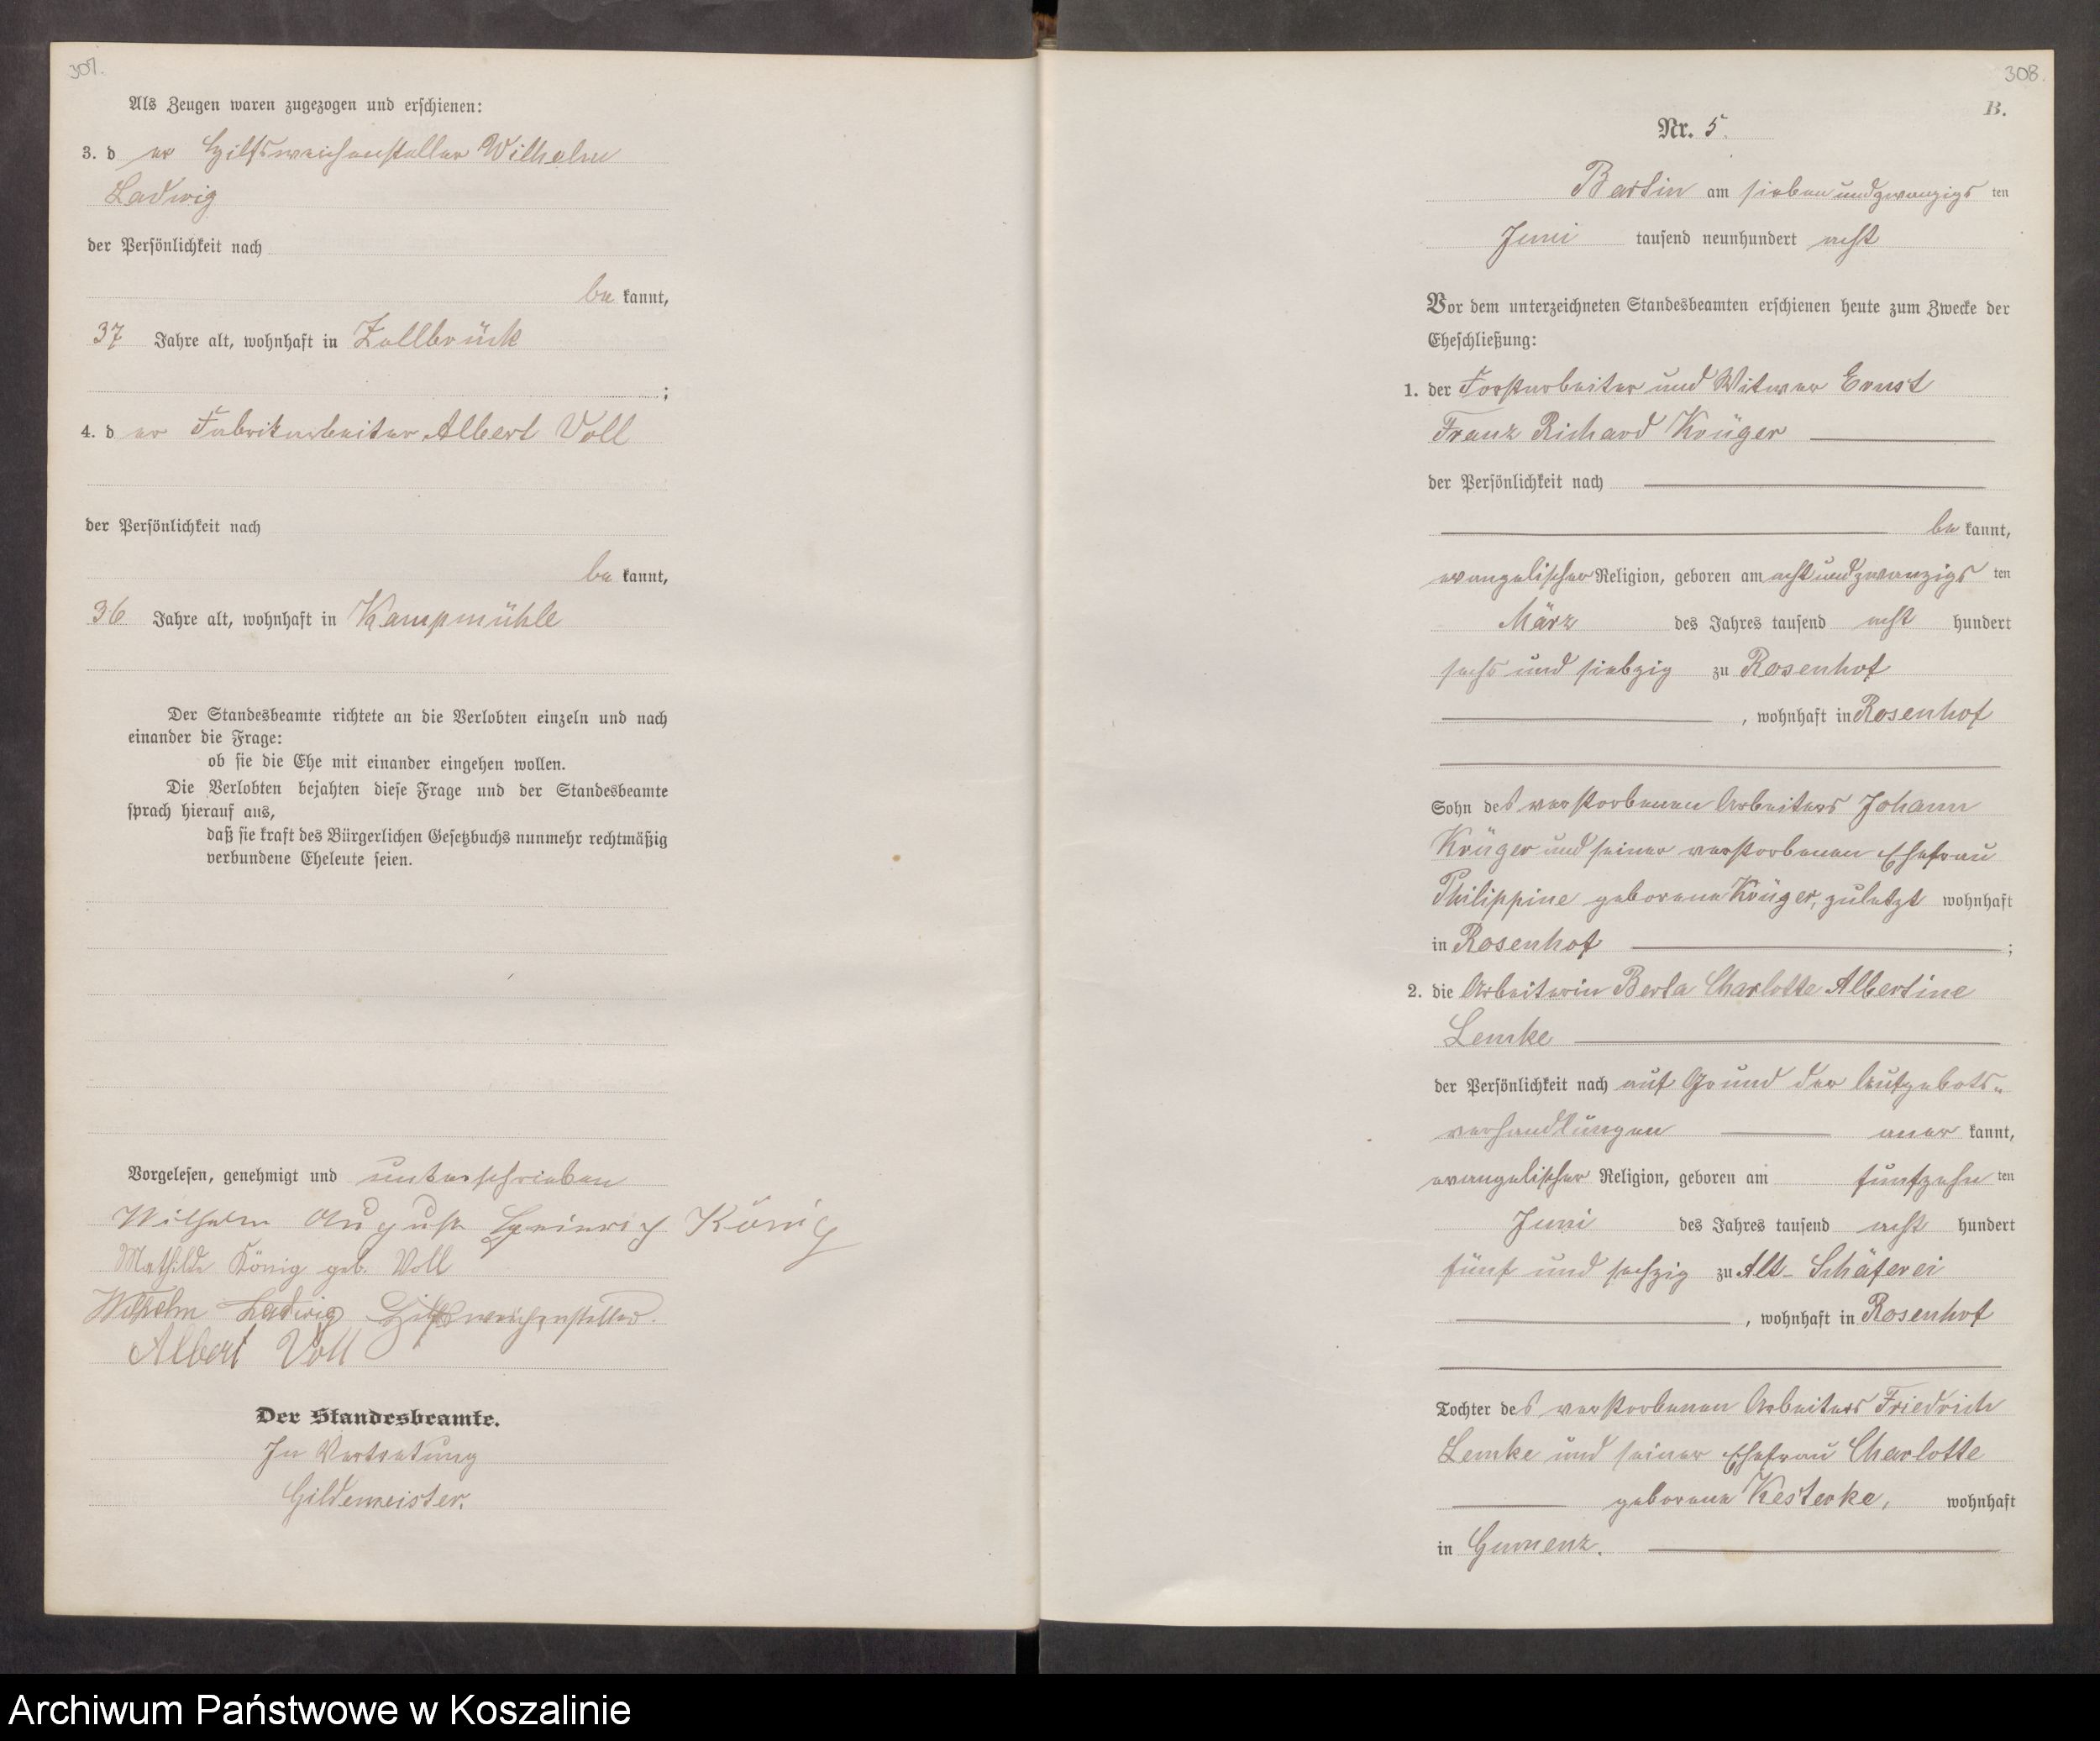 307.
Als Zeugen waren zugezogen und erschienen:
3. d er Hilfsweichensteller Wilhelm
Ladwig
der Persönlichkeit nach
be kannt,
37 Jahre alt, wohnhaft in Zollbrück
;
4. d er Fabrikarbeiter Albert Voll
der Persönlichkeit nach
be kannt,
36 Jahre alt, wohnhaft in Kampmühle
Der Standesbeamte richtete an die Verlobten einzeln und nach
einander die Frage:
ob sie die Ehe mit einander eingehen wollen.
Die Verlobten bejahten diese Frage und der Standesbeamte
sprach hierauf aus,
daß sie kraft des Bürgerlichen Gesetzbuchs nunmehr rechtmäßig
verbundene Eheleute seien.
Vorgelesen, genehmigt und unterschrieben
Wilhelm August Heinrich König
Mathilde König geb. Voll
Wilhelm Ladwig Hilfsweichensteller.
Albert Voll
Der Standesbeamte.
In Vertretung
Gildemeister.
308.
B.
Nr. 5.
Bartin am siebenundzwanzigs ten
Juni tausend neunhundert acht
Vor dem unterzeichneten Standesbeamten erschienen heute zum Zwecke der
Eheschließung:
1. der Forstarbeiter und Witwer Ernst
Franz Richard Krüger
der Persönlichkeit nach
be kannt,
evangelischer Religion, geboren am achtundzwanzigs ten
März des Jahres tausend acht hundert
sechs und siebzig zu Rosenhof
, wohnhaft in Rosenhof
Sohn des verstorbenen Arbeiters Johann
Krüger und seiner verstorbenen Ehefrau
Philippine geborene Krüger, zuletzt wohnhaft
in Rosenhof ;
2. die Arbeiterin Berta Charlotte Albertine
Lemke
der Persönlichkeit nach auf Grund der Aufgebots-
verhandlungen aner kannt,
evangelischer Religion, geboren am fünfzehn ten
Juni des Jahres tausend acht hundert
fünf und sechzig zu Alt-Schäferei
, wohnhaft in Rosenhof
Tochter des verstorbenen Arbeiters Friedrich
Lemke und seiner Ehefrau Charlotte
geborene Kesterke, wohnhaft
in Gumenz.
Archiwum Państwowe w Koszalinie